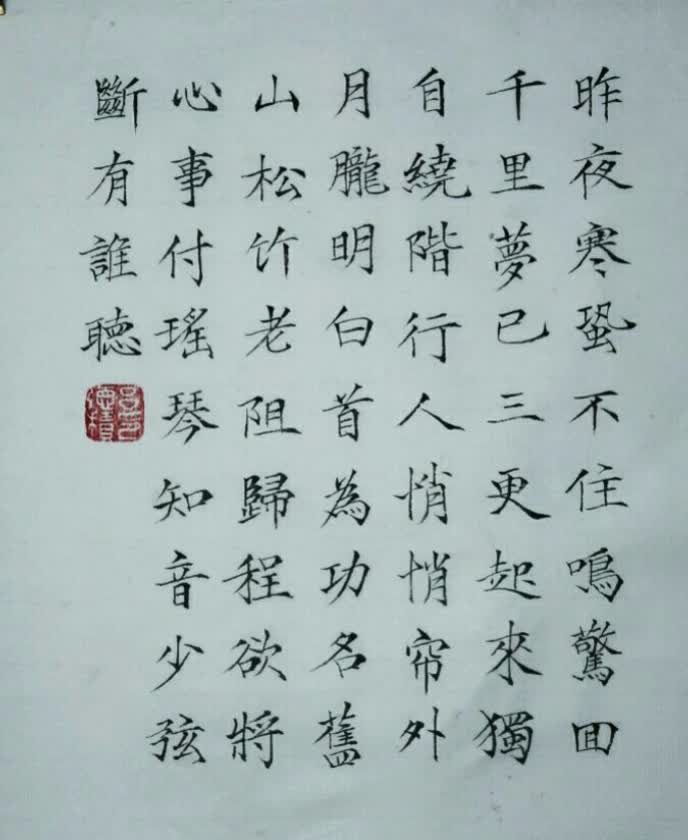 昨夜寒蛩不住鳴驚回
千里夢已三更起來獨
自繞階行人悄悄帘外
月朧明白首為功名舊
山松竹老阻歸程欲將
心事付瑤琴知音少弦
斷有誰聽